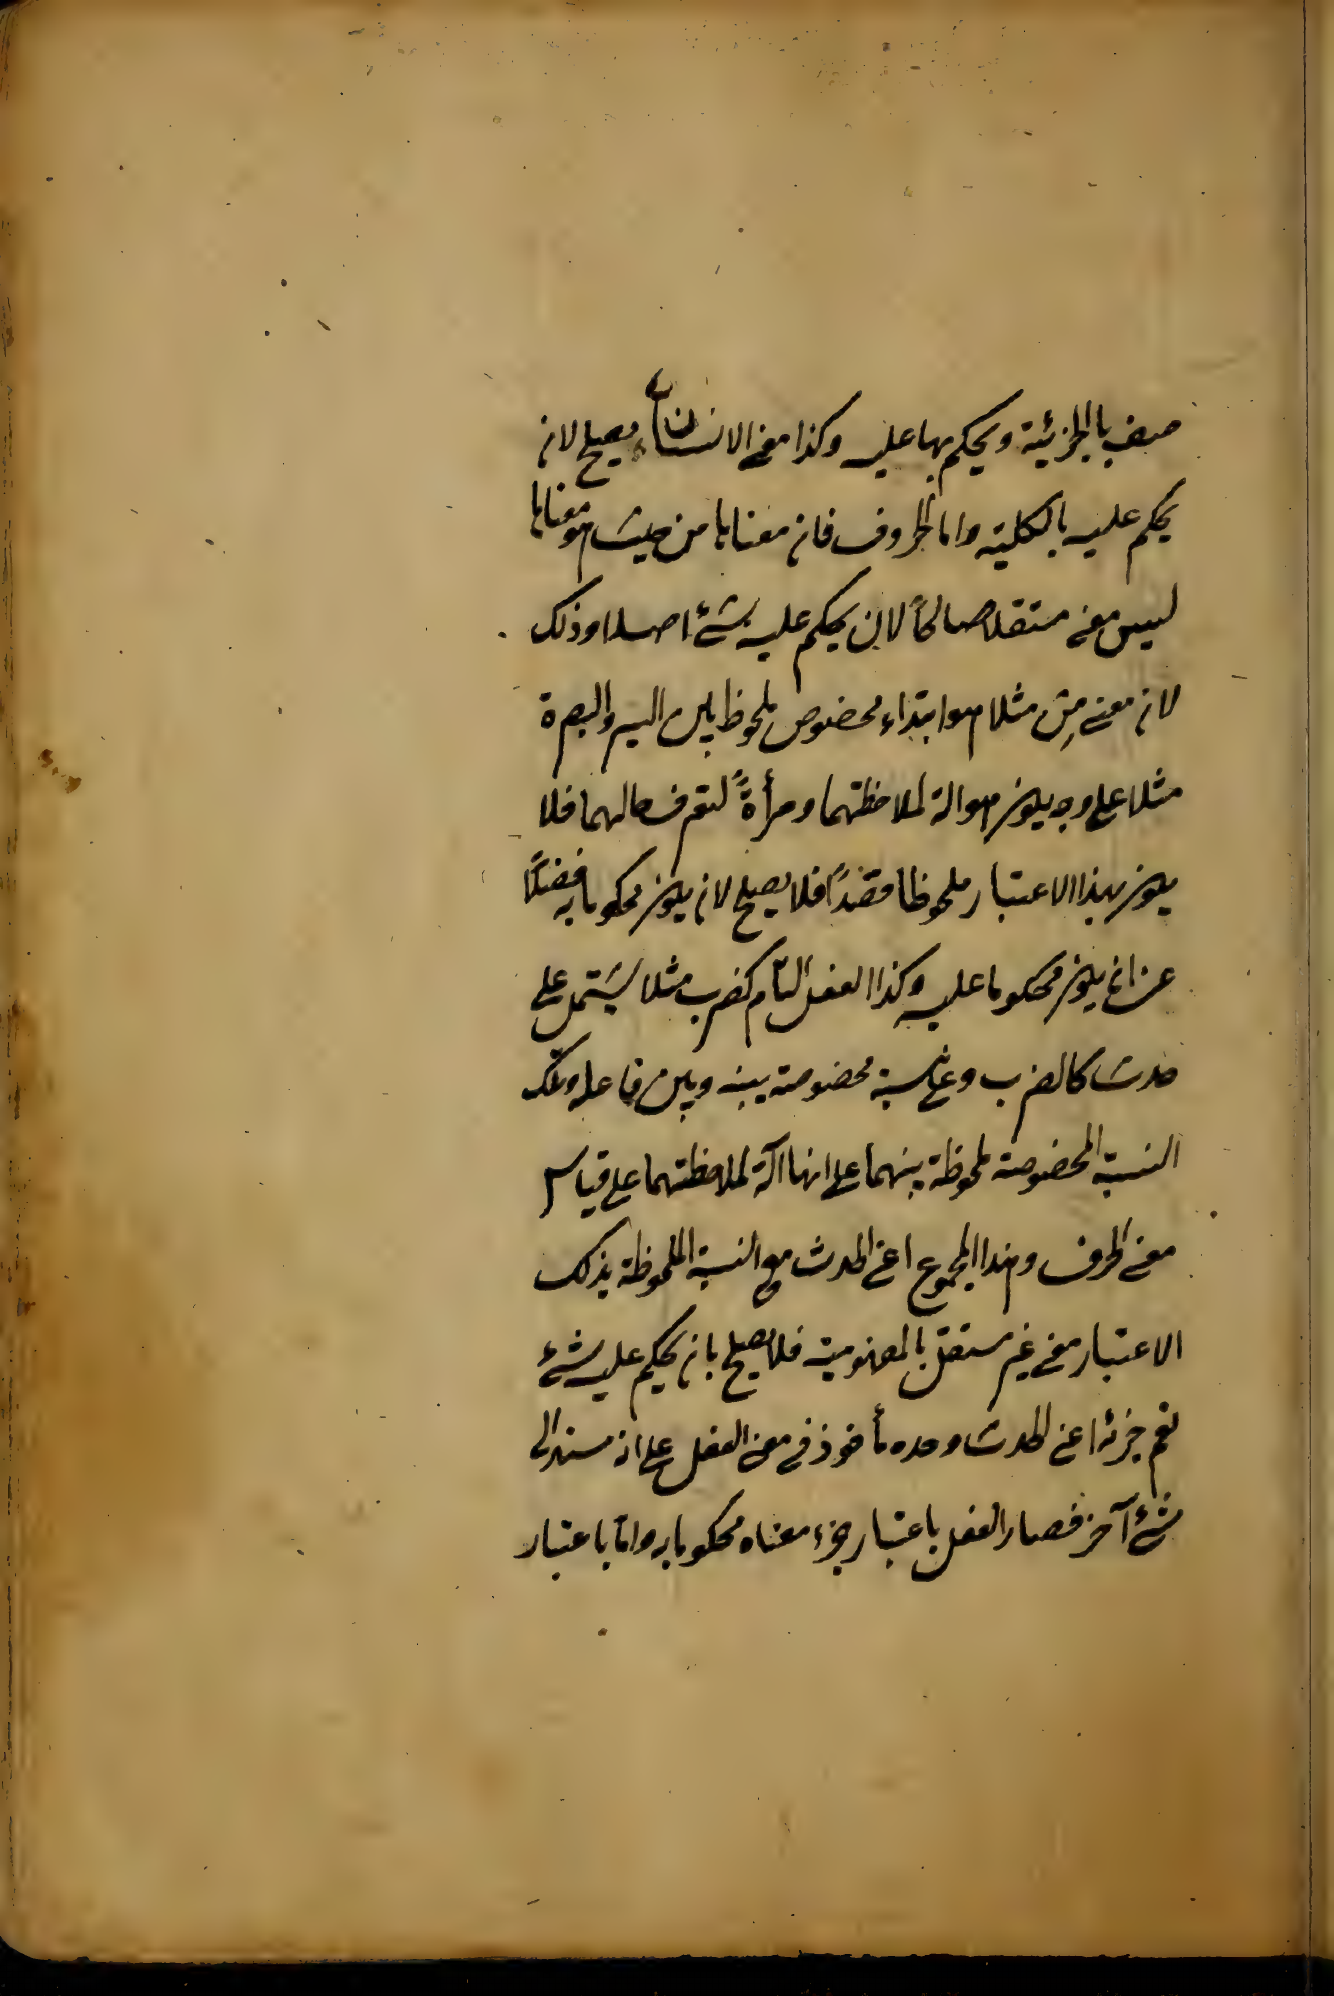 صف بالجزئية ويحكم بها عليه وكذا معنى الانسان يصلح لان
يحكم عليه بالكلية واما الحروف فان معناها من حيث هو معناها
ليس معنى مستقلا صالحاً لان يحكم عليه بشئ اصلا وذلك
لان معنى مِن مثلا هو ابتداء مخصوص ملحوظ بين السير والبصرة
مثلا على وجه يكون هو الة لملاحظتهما ومرأةً لتعرف حالهما فلا
يكون بهذا الاعتبار ملحوظا قصداً فلا يصلح لان يكون محكوما به فضلاً
عن ان يكون محكوما عليه وكذا الفعل التام كضرب مثلا يشتمل على
حدث كالضرب وعلى نسبة مخصوصة بينه وبين فاعله وتلك
النسبة المخصوصة ملحوظة بينهما على انها آلة لملاحظتهما على قياس
معنى الحرف وهذا المجموع اعنى الحدث مع النسبة الملحوظة بذلك
الاعتبار معنى غير مستقل بالمفهومية فلا يصلح بان يحكم عليه بشئ
نعم جزئه اعنى الحدث وحده مأخوذ فى معنى الفعل على انه مسند الى
شئ آخر فصار الفعل باعتبار جزء معناه محكوما به واما باعتبار